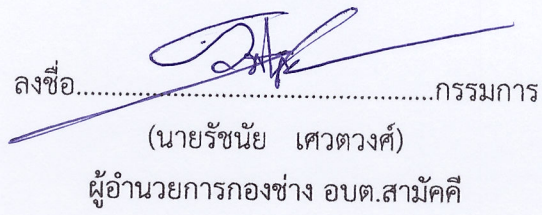 ลงชื่อ..................................................กรรมการ
(นายรัชนัย เศวตวงศ์)
ผู้อำนวยการกองช่าง อบต.สามัคคี